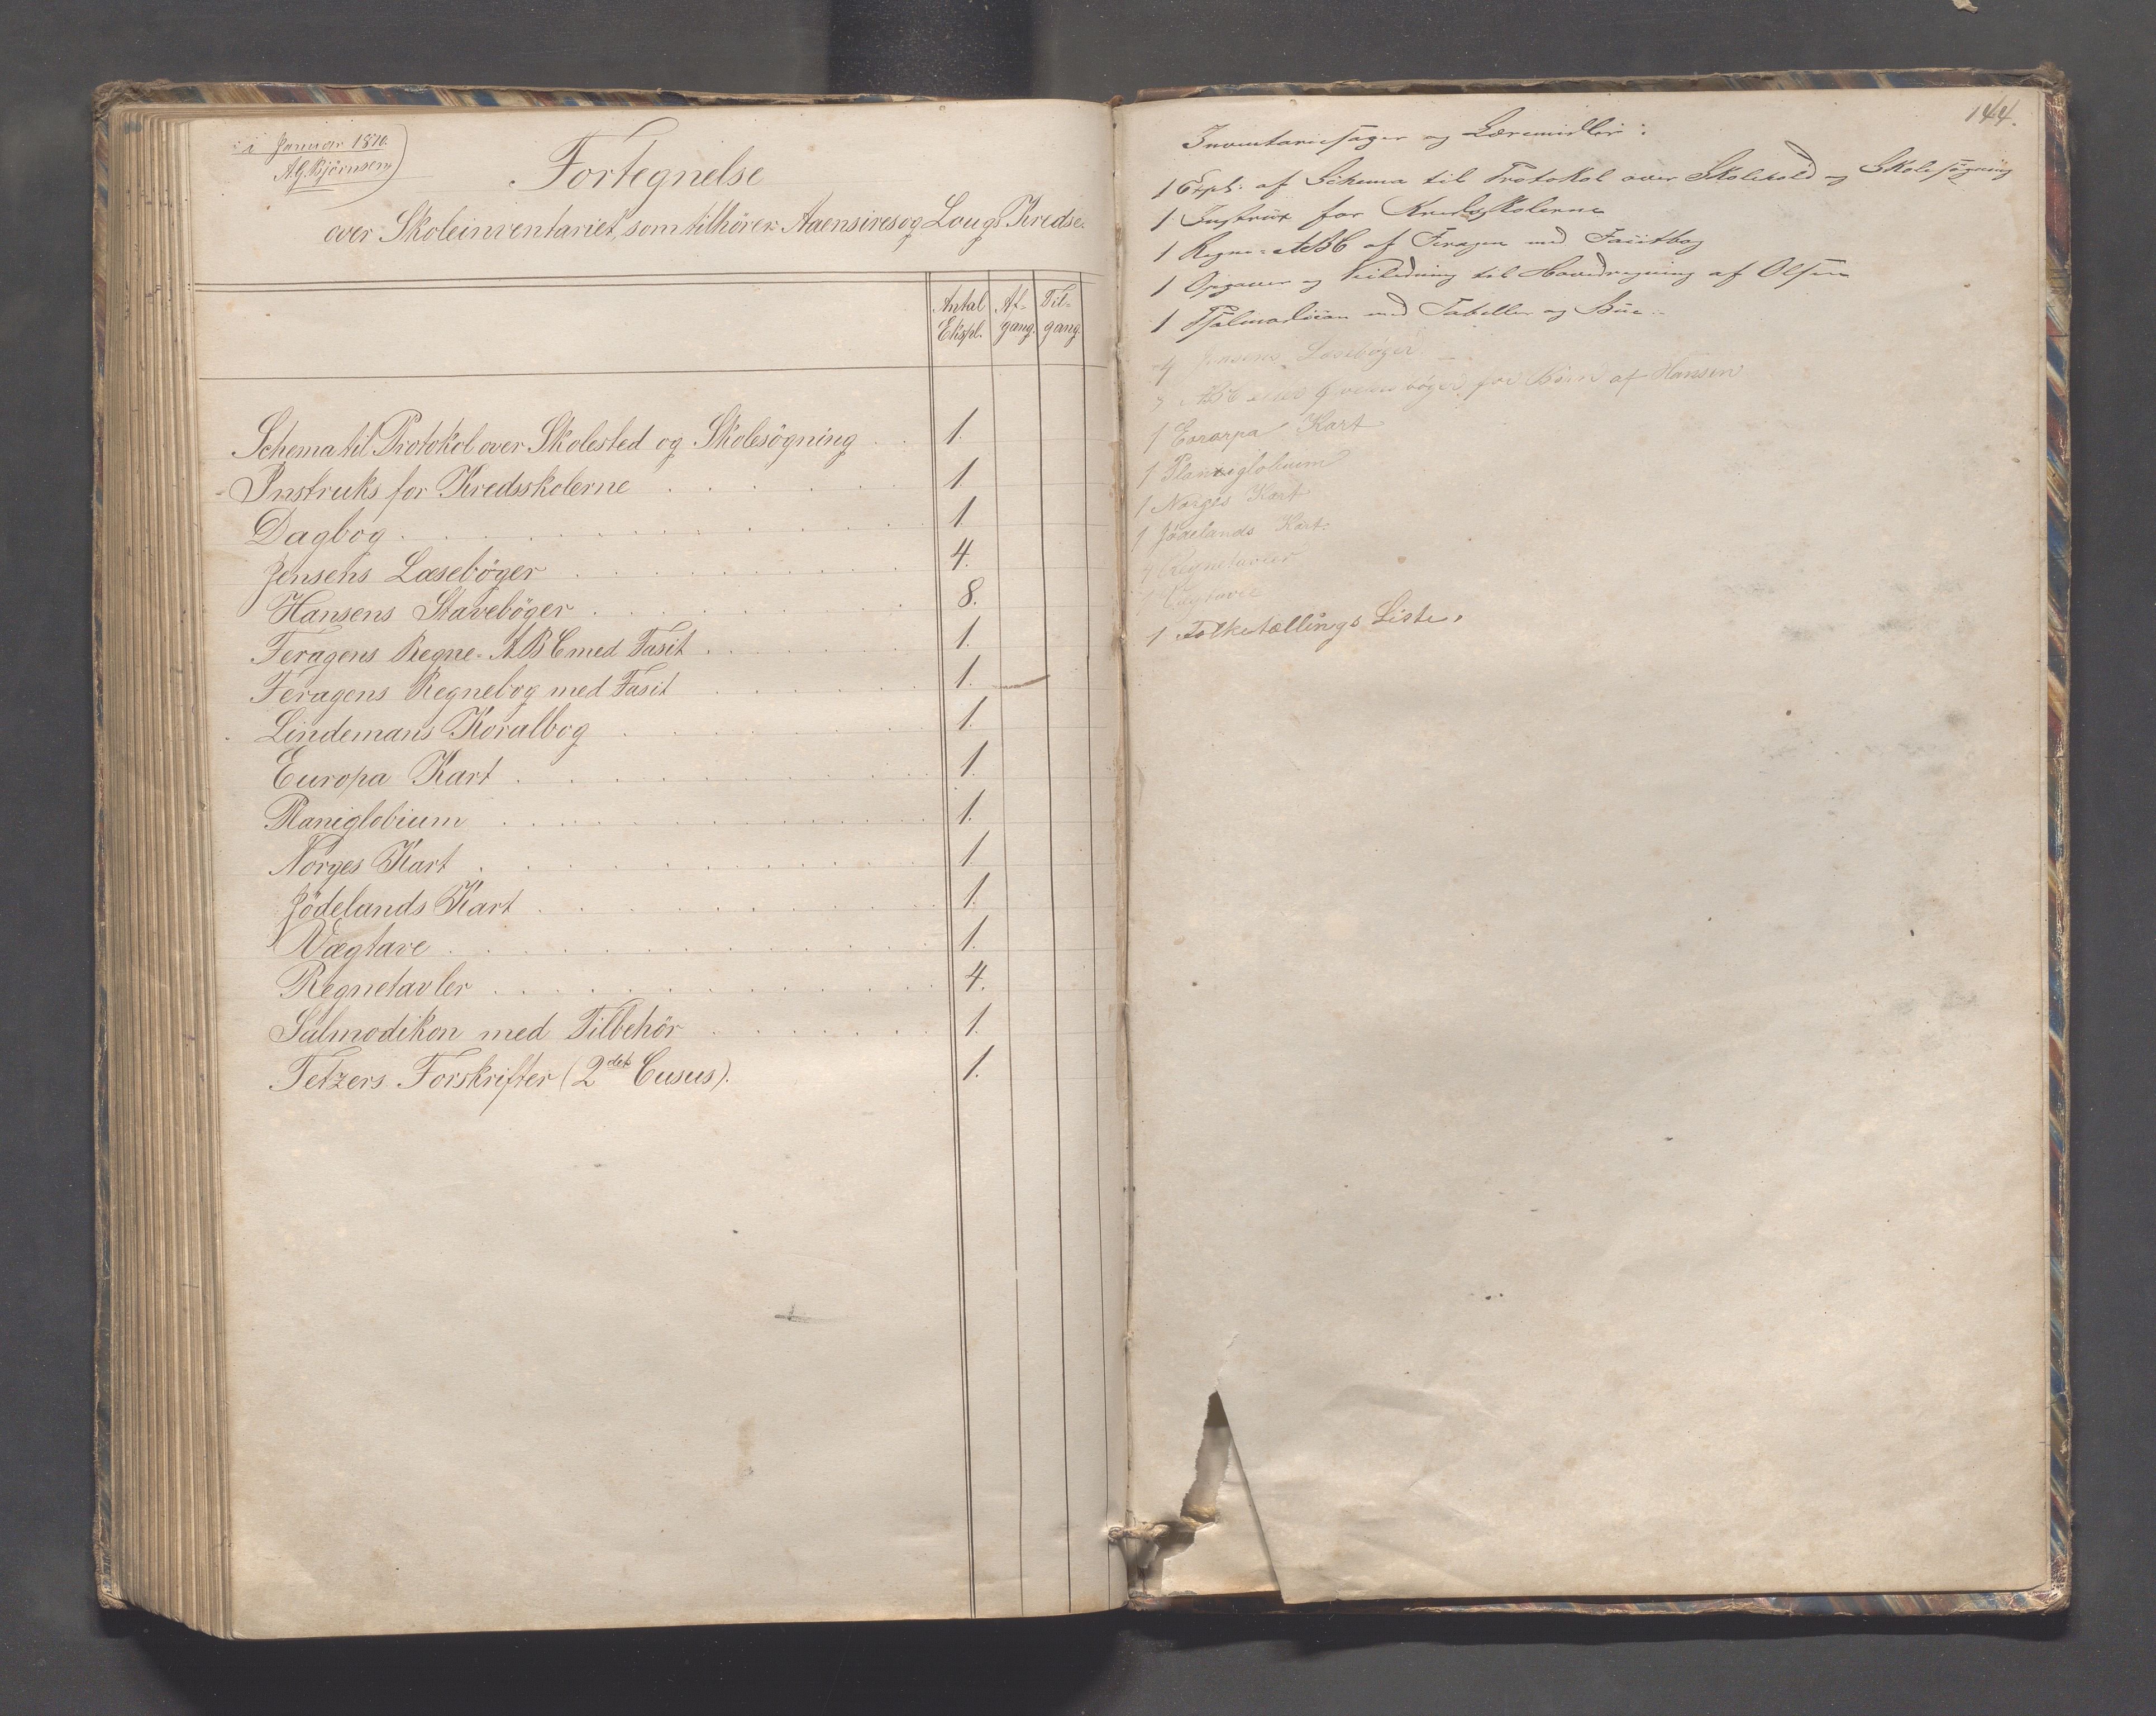 i Januar 1870.
A.G. Bjørnsen
Fortegnelse
over Skoleinventariet, som tilhører Aaensires og Lougs Kredse.
Antal Ekspl. Af-gang. Til-gang.
Schema til Protokol over Skolested og Skolesøgning . . 1.
Instruks for Kredsskolerne . . . . . . 1.
Dagbog . . . . . . . . . . 1
Jensens Læsebøger . . . . . . . . 4.
Hansens Stavebøger . . . . . . . . 8.
Feragens Regne-ABC med Fasit . . . . . . 1.
Feragens Regnebog med Fasit . . . . . . 1.
Lindemans Koralbog . . . . . . . 1.
Europa Kart . . . . . . . . . 1.
Planiglobium . . . . . . . . . 1.
Norges Kart . . . . . . . . . 1
Jødelands Kart . . . . . . . . 1.
Vægtave . . . . . . . . . . 1.
Regnetavler . . . . . . . . . 4.
Salmodikon med Tilbehör . . . . . . 1.
Tetzers Forskrifter (2det Cusus). 1.
144.
Inventariesager og Læremidler:
1 Expl. af Schema til Protokol over Skolehold og Skolesøgning
1 Instrux for Kredsskolerne
1 Regne-ABC af Feragen med Facitbog
1 Opgaver og Veiledning til Hovedregning af Olsen
1 Psalmodicon med Tabeller og Bue.
4 Jensens Læsebøger
ABC eller bøger for Børn af Hansen
1 Euroropa Kart
1 Planiglobium
1 Norges Kart
1 Jødelands Kart.
4 Regnetavler
1 Vægtavle
1 Folketællings Liste.